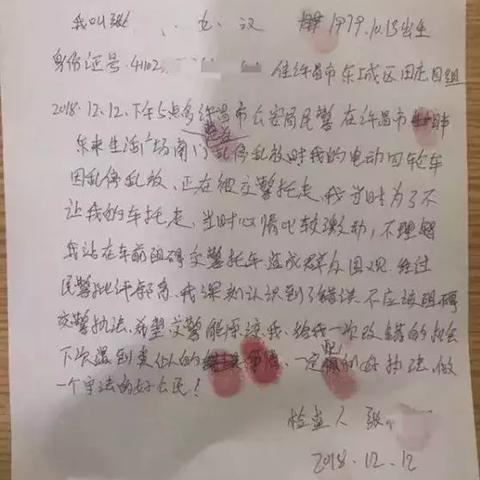 我叫张 女 汉 1979.10.15出生
身份证号 41102 住许昌市东城区田庄四组
2018.12.12.下午5点多许昌市公安局民警在许昌市
东来生活广场南门乱停乱放时我的电动四轮车
因乱停乱放、正在被交警托走,我当时为了不
让我的车托走,当时心情比较激动,不理解
我站在车前阻碍交警托车造成群众围观.经过
民警批评教育.我深刻认识到了错误.不应该阻碍
交警执法.希望交警能原谅我、给我一次改错的机会
下次遇到类似的 一定 好执法,做
一个守法的好公民!
检查人 张
2018.12.12